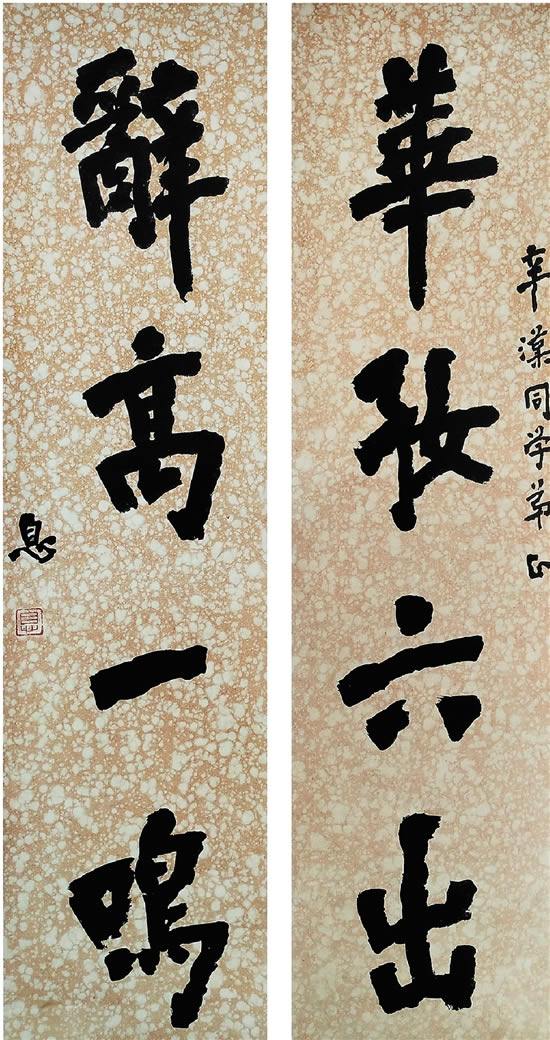 辛漢同学弟正
華六出
辭高一鳴
息